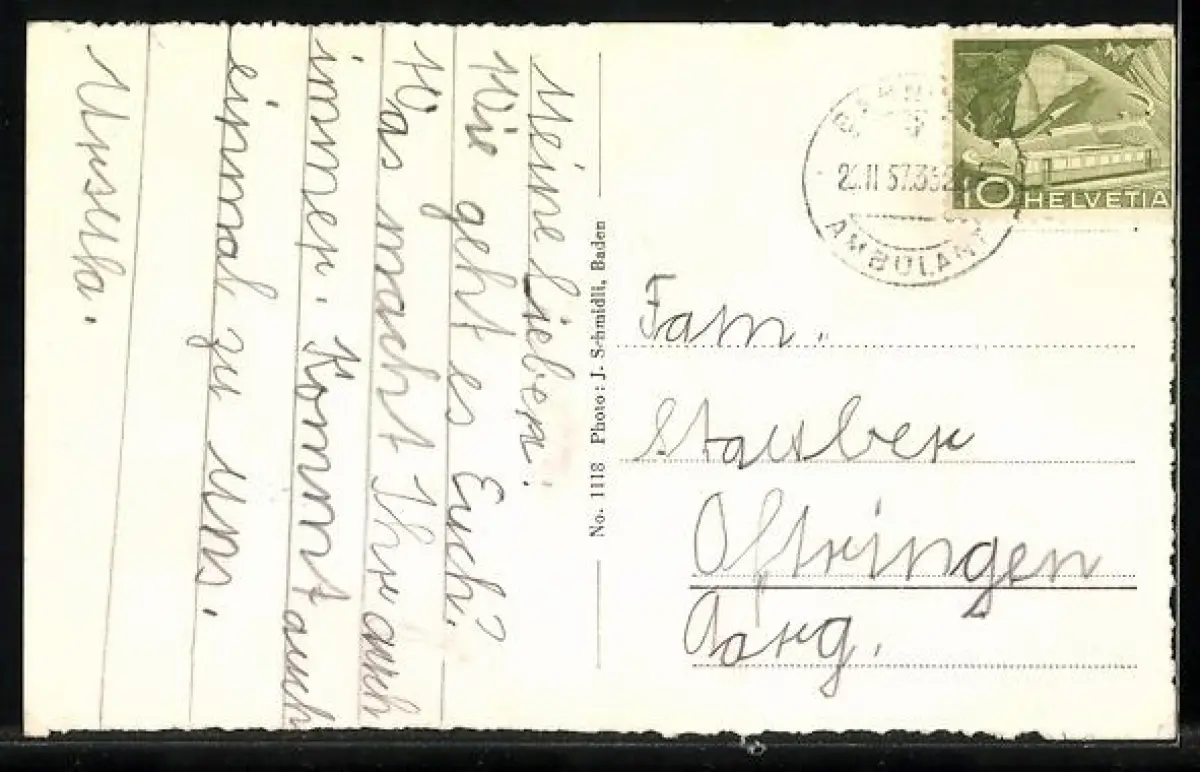 Meine Lieben!
Wie geht es Euch?
Was macht Ihr auch
immer. Kommt auch
einmal zu uns.
Ursula.
No. 1118 Photo: J. Schmidli, Baden
AMBULANT
10 HELVETIA
Fam.
Stauber
Oftringen
Aarg.